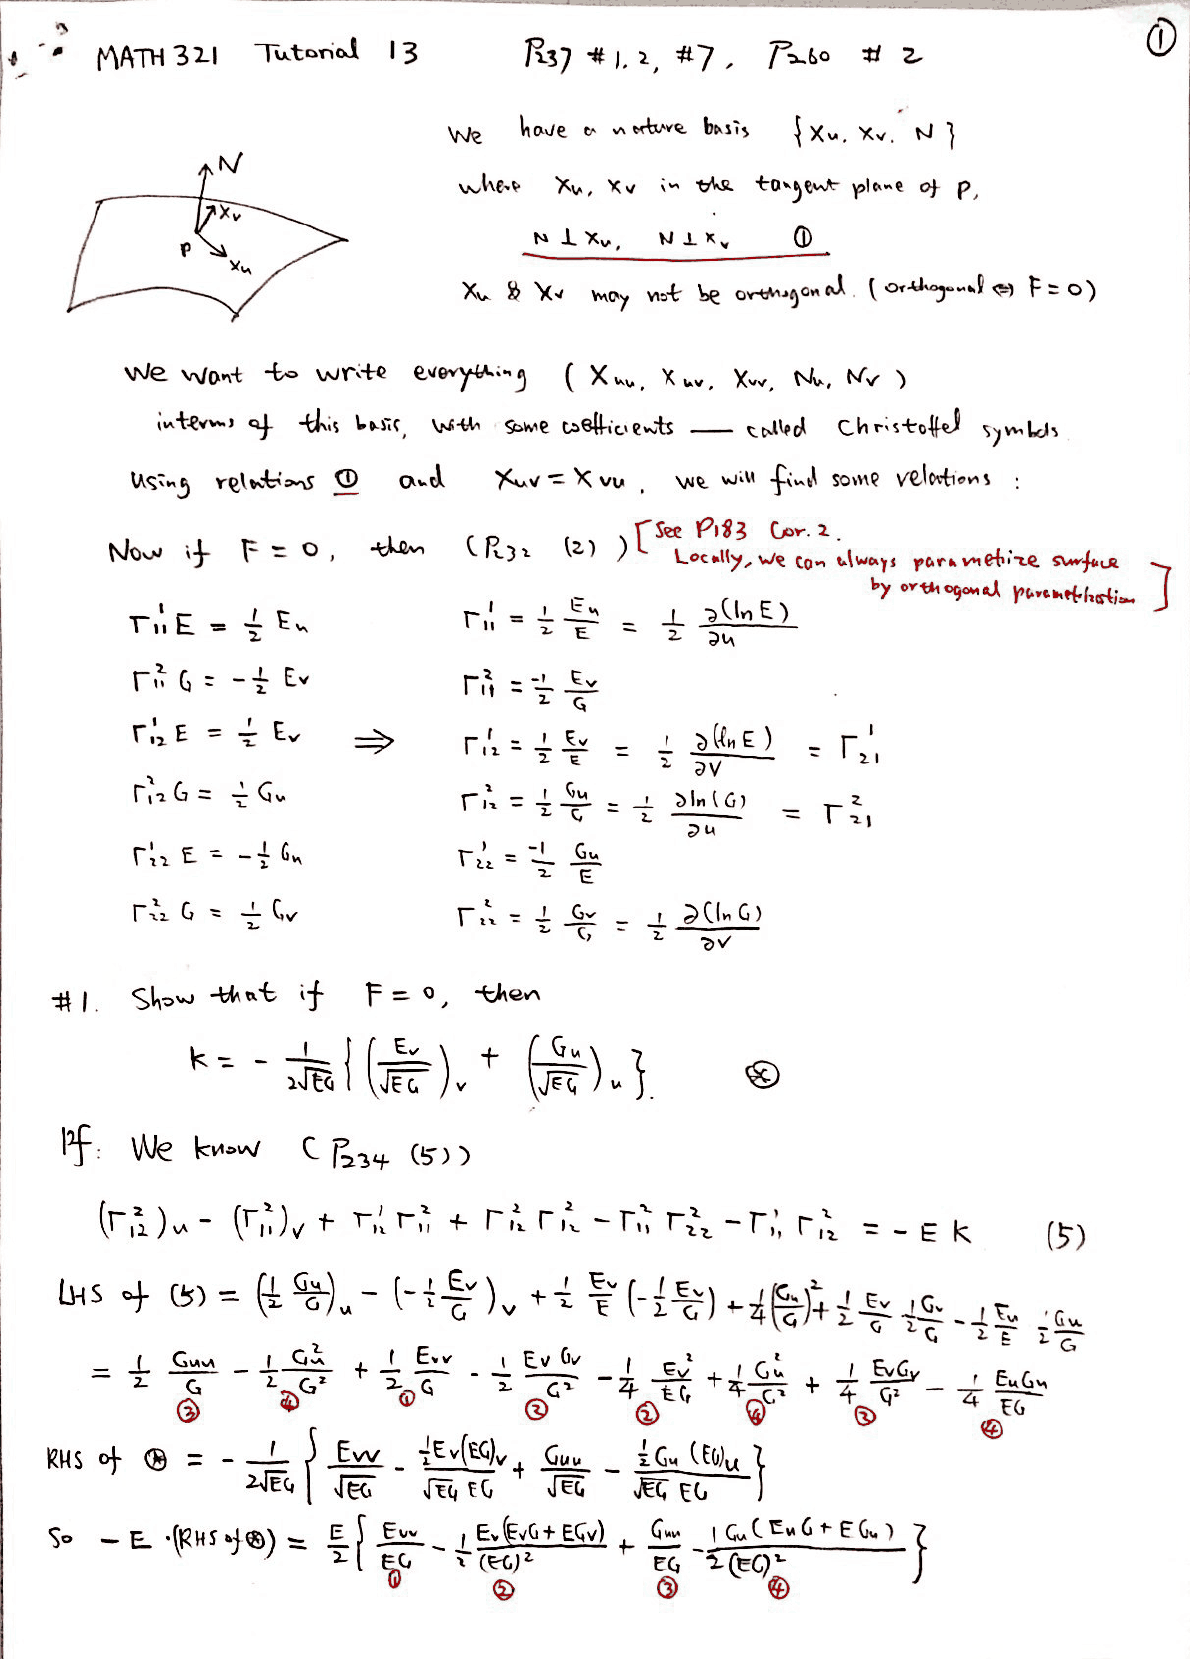 ①
MATH 321 Tutorial 13 P237 #1.2, #7, P260 #2
We have a nature basis {Xu, Xv, N}
where Xu, Xv in the tangent plane of P,
N ⊥ Xu, N ⊥ Xv ①
Xu & Xv may not be orthogonal. (orthogonal ⇔ F=0)
N
Xv
P
Xu
We want to write everything (Xuu, Xuv, Xvv, Nu, Nv)
interms of this basis, with some coefficients — called Christoffel symbols
Using relations ① and Xuv = Xvu, we will find some relations:
Now if F = 0, then (P232 (2)) [See P183 Cor. 2.
Locally, we can always parametrize surface
by orthogonal parametrization]
Γ¹₁₁ E = ½ Eu Γ¹₁₁ = ½ Eu/E = ½ ∂(ln E)/∂u
Γ²₁₁ G = -½ Ev Γ²₁₁ = -½ Ev/G
Γ¹₁₂ E = ½ Ev ⇒ Γ¹₁₂ = ½ Ev/E = ½ ∂(ln E)/∂v = Γ¹₂₁
Γ²₁₂ G = ½ Gu Γ²₁₂ = ½ Gu/G = ½ ∂ln(G)/∂u = Γ²₂₁
Γ¹₂₂ E = -½ Gu Γ¹₂₂ = -½ Gu/E
Γ²₂₂ G = ½ Gv Γ²₂₂ = ½ Gv/G = ½ ∂(ln G)/∂v
#1. Show that if F = 0, then
K = - 1/(2√EG) { (Ev/√EG)v + (Gu/√EG)u }. ⊛
Pf: We know (P234 (5))
(Γ²₁₂)u - (Γ²₁₁)v + Γ¹₁₂ Γ²₁₁ + Γ²₁₂ Γ²₁₂ - Γ²₁₁ Γ²₂₂ - Γ¹₁₁ Γ²₁₂ = -E K (5)
LHS of (5) = (½ Gu/G)u - (-½ Ev/G)v + ½ Ev/E (-½ Ev/G) + ¼ (Gu/G)² + ½ Ev/G ½ Gv/G - ½ Eu/E ½ Gu/G
= ½ Guu/G - ½ Gu²/G² + ½ Evv/G - ½ Ev Gv/G² - ¼ Ev²/EG + ¼ Gu²/G² + ¼ EvGv/G² - ¼ EuGu/EG
③ ④ ① ② ② ④ ② ④
RHS of ⊛ = - 1/(2√EG) { Evv/√EG - ½Ev(EG)v/(√EG EG) + Guu/√EG - ½Gu(EG)u/(√EG EG) }
So - E · (RHS of ⊛) = E/2 { Evv/EG - ½ Ev(EvG + EGv)/(EG)² + Guu/EG - ½ Gu(EuG + EGu)/(EG)² }
① ② ③ ④